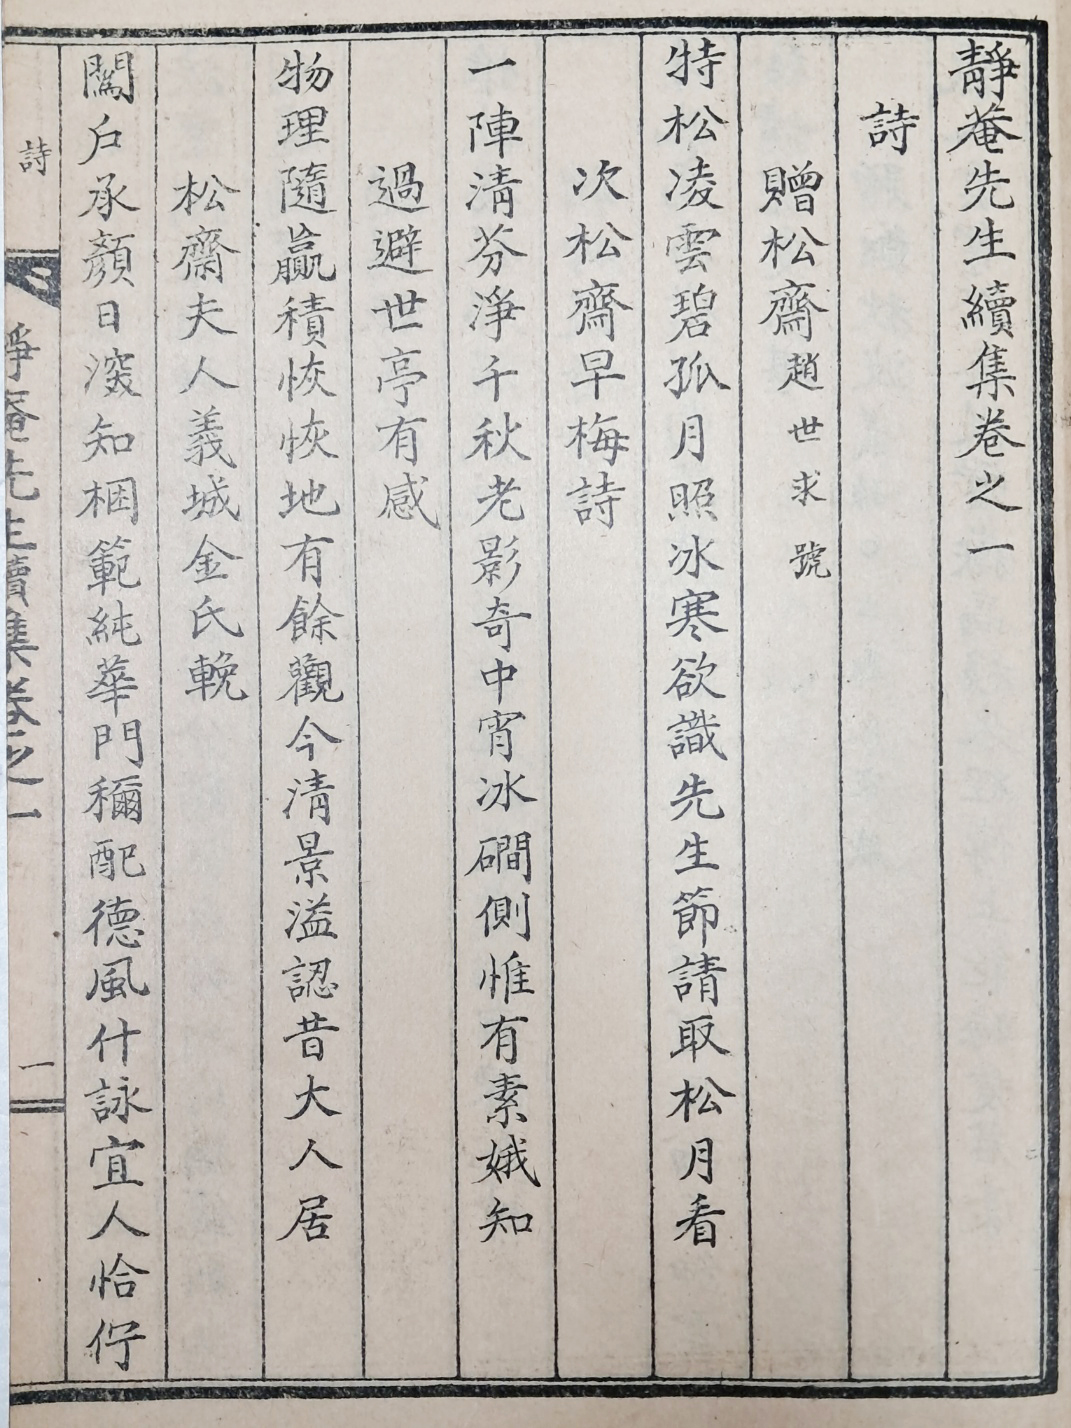 靜菴先生續集卷之一
詩
贈松齋趙世求號
特松凌雲碧孤月照冰寒欲識先生節請取松月看
次松齋早梅詩
一陣淸芬淨千秋老影奇中宵冰磵側惟有素娥知
過避世亭有感
物理隨贏積恢恢地有餘觀今淸景溢認昔大人居
松齋夫人義城金氏輓
闖戶承顏日深知梱範純華門稱配德風什詠宜人恰
詩
靜菴先生續集卷之一
一